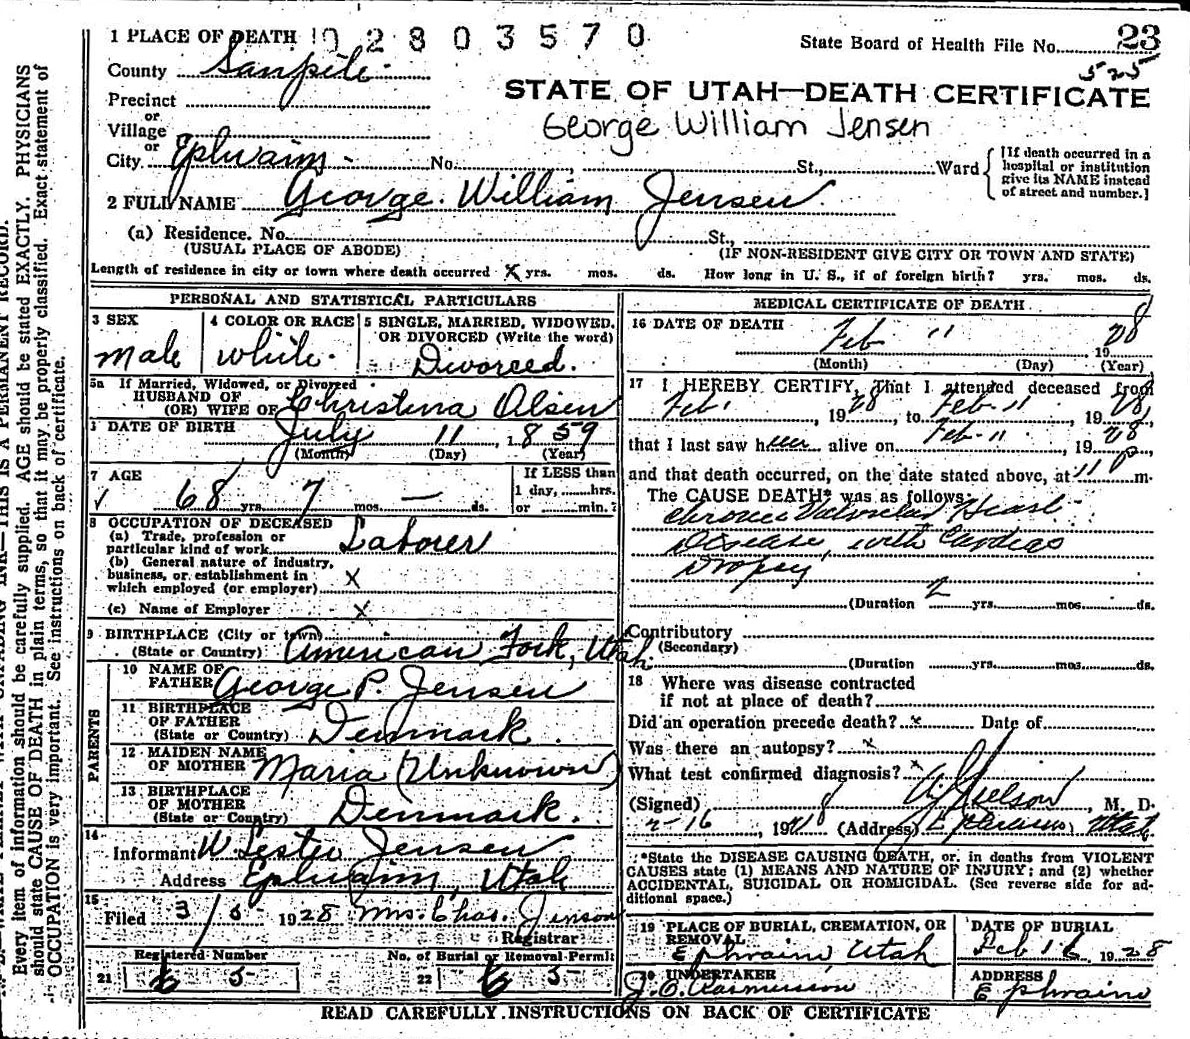 1 PLACE OF DEATH 0 2 8 0 3 5 7 0
State Board of Health File No. 23
525
County Sanpete
STATE OF UTAH—DEATH CERTIFICATE
Precinct
or
Village
George William Jensen
or
City Ephraim No. St., Ward
[If death occurred in a hospital or institution give its NAME instead of street and number.]
2 FULL NAME George William Jensen
(a) Residence. No. St.,
(USUAL PLACE OF ABODE) (IF NON-RESIDENT GIVE CITY OR TOWN AND STATE)
Length of residence in city or town where death occurred X yrs. mos. ds. How long in U. S., if of foreign birth? yrs. mos. ds.
PERSONAL AND STATISTICAL PARTICULARS
3 SEX
Male
4 COLOR OR RACE
White
5 SINGLE, MARRIED, WIDOWED, OR DIVORCED (Write the word)
Divorced.
5a If Married, Widowed, or Divorced
HUSBAND OF
(OR) WIFE OF Christina Olsen
DATE OF BIRTH July 11, 1859
(Month) (Day) (Year)
7 AGE
68 yrs. 7 mos. — ds.
If LESS than
1 day, hrs.
or min.?
8 OCCUPATION OF DECEASED
(a) Trade, profession or
particular kind of work Laborer
(b) General nature of industry,
business, or establishment in
which employed (or employer) X
(c) Name of Employer X
9 BIRTHPLACE (City or town)
(State or Country) American Fork, Utah
PARENTS
10 NAME OF
FATHER George P. Jensen
11 BIRTHPLACE
OF FATHER
(State or Country) Denmark.
12 MAIDEN NAME
OF MOTHER Maria (Unknown)
13 BIRTHPLACE
OF MOTHER
(State or Country) Denmark.
14
Informant W Lester Jensen
Address Ephraim, Utah
15
Filed 3/5 1928 Mrs. Chas. Jenson
Registrar
Registered Number
21 5
No. of Burial or Removal Permit
22 5
MEDICAL CERTIFICATE OF DEATH
16 DATE OF DEATH
Feb 11 1928
(Month) (Day) (Year)
17 I HEREBY CERTIFY, That I attended deceased from
Feb. , 1928, to Feb-11, 1928,
that I last saw h alive on Feb-11, 1928
and that death occurred, on the date stated above, at 11 P m.
The CAUSE DEATH* was as follows:
Chronic Valvular Heart
Disease, with Cardiac
Dropsy
(Duration 2 yrs. mos. ds.
Contributory
(Secondary)
(Duration yrs. mos. ds.
18 Where was disease contracted
if not at place of death?
Did an operation precede death? x Date of
Was there an autopsy? x
What test confirmed diagnosis? x
(Signed) Nielson, M. D.
2-16, 1928 (Address) Ephraim, Utah
*State the DISEASE CAUSING DEATH, or, in deaths from VIOLENT
CAUSES state (1) MEANS AND NATURE OF INJURY; and (2) whether
ACCIDENTAL, SUICIDAL OR HOMICIDAL. (See reverse side for ad-
ditional space.)
19 PLACE OF BURIAL, CREMATION, OR
REMOVAL
Ephraim Utah
DATE OF BURIAL
Feb 16 1928
20 UNDERTAKER
J. C. Rasmusson
ADDRESS
Ephraim
READ CAREFULLY INSTRUCTIONS ON BACK OF CERTIFICATE
THIS IS A PERMANENT RECORD.
Every item of information should be carefully supplied. AGE should be stated EXACTLY. PHYSICIANS
should state CAUSE OF DEATH in plain terms, so that it may be properly classified. Exact statement of
OCCUPATION is very important. See instructions on back of certificate.